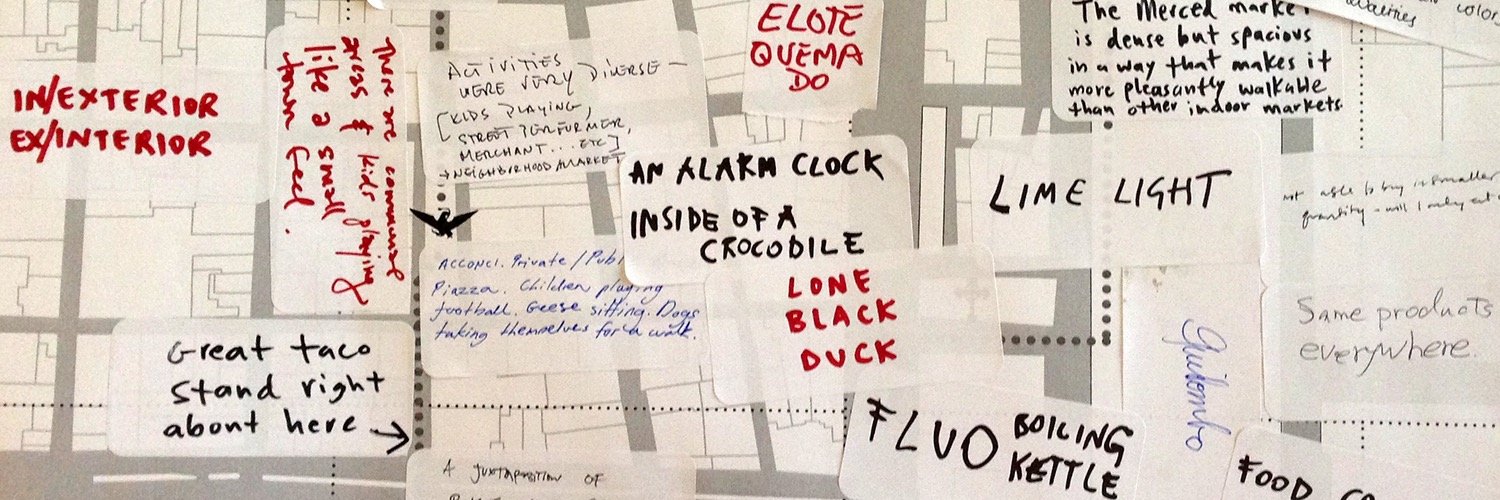 IN/EXTERIOR
EX/INTERIOR
There are communal
areas & kids playing
like a small
town feel.
ACTIVITIES
WERE VERY DIVERSE -
[KIDS PLAYING,
STREET PERFORMER,
MERCHANT... ETC]
→ NEIGHBORHOOD MARKET
ELOTE
QUEMA
DO
The Merced market
is dense but spacious
in a way that makes it
more pleasantly walkable
than other indoor markets.
color
AN ALARM CLOCK
INSIDE OF A
CROCODILE
LIME LIGHT
not able to buy in smaller
quantity - will only eat
ACCONCI. Private / Publ
Piazza. Children playing
football. Geese sitting. Dogs
taking themselves for a walk.
LONE
BLACK
DUCK
Great taco
stand right
about here →
Quilombo
Same products
everywhere.
FLUO BOILING
KETTLE
A JUXTAPOSITION OF
FOOD